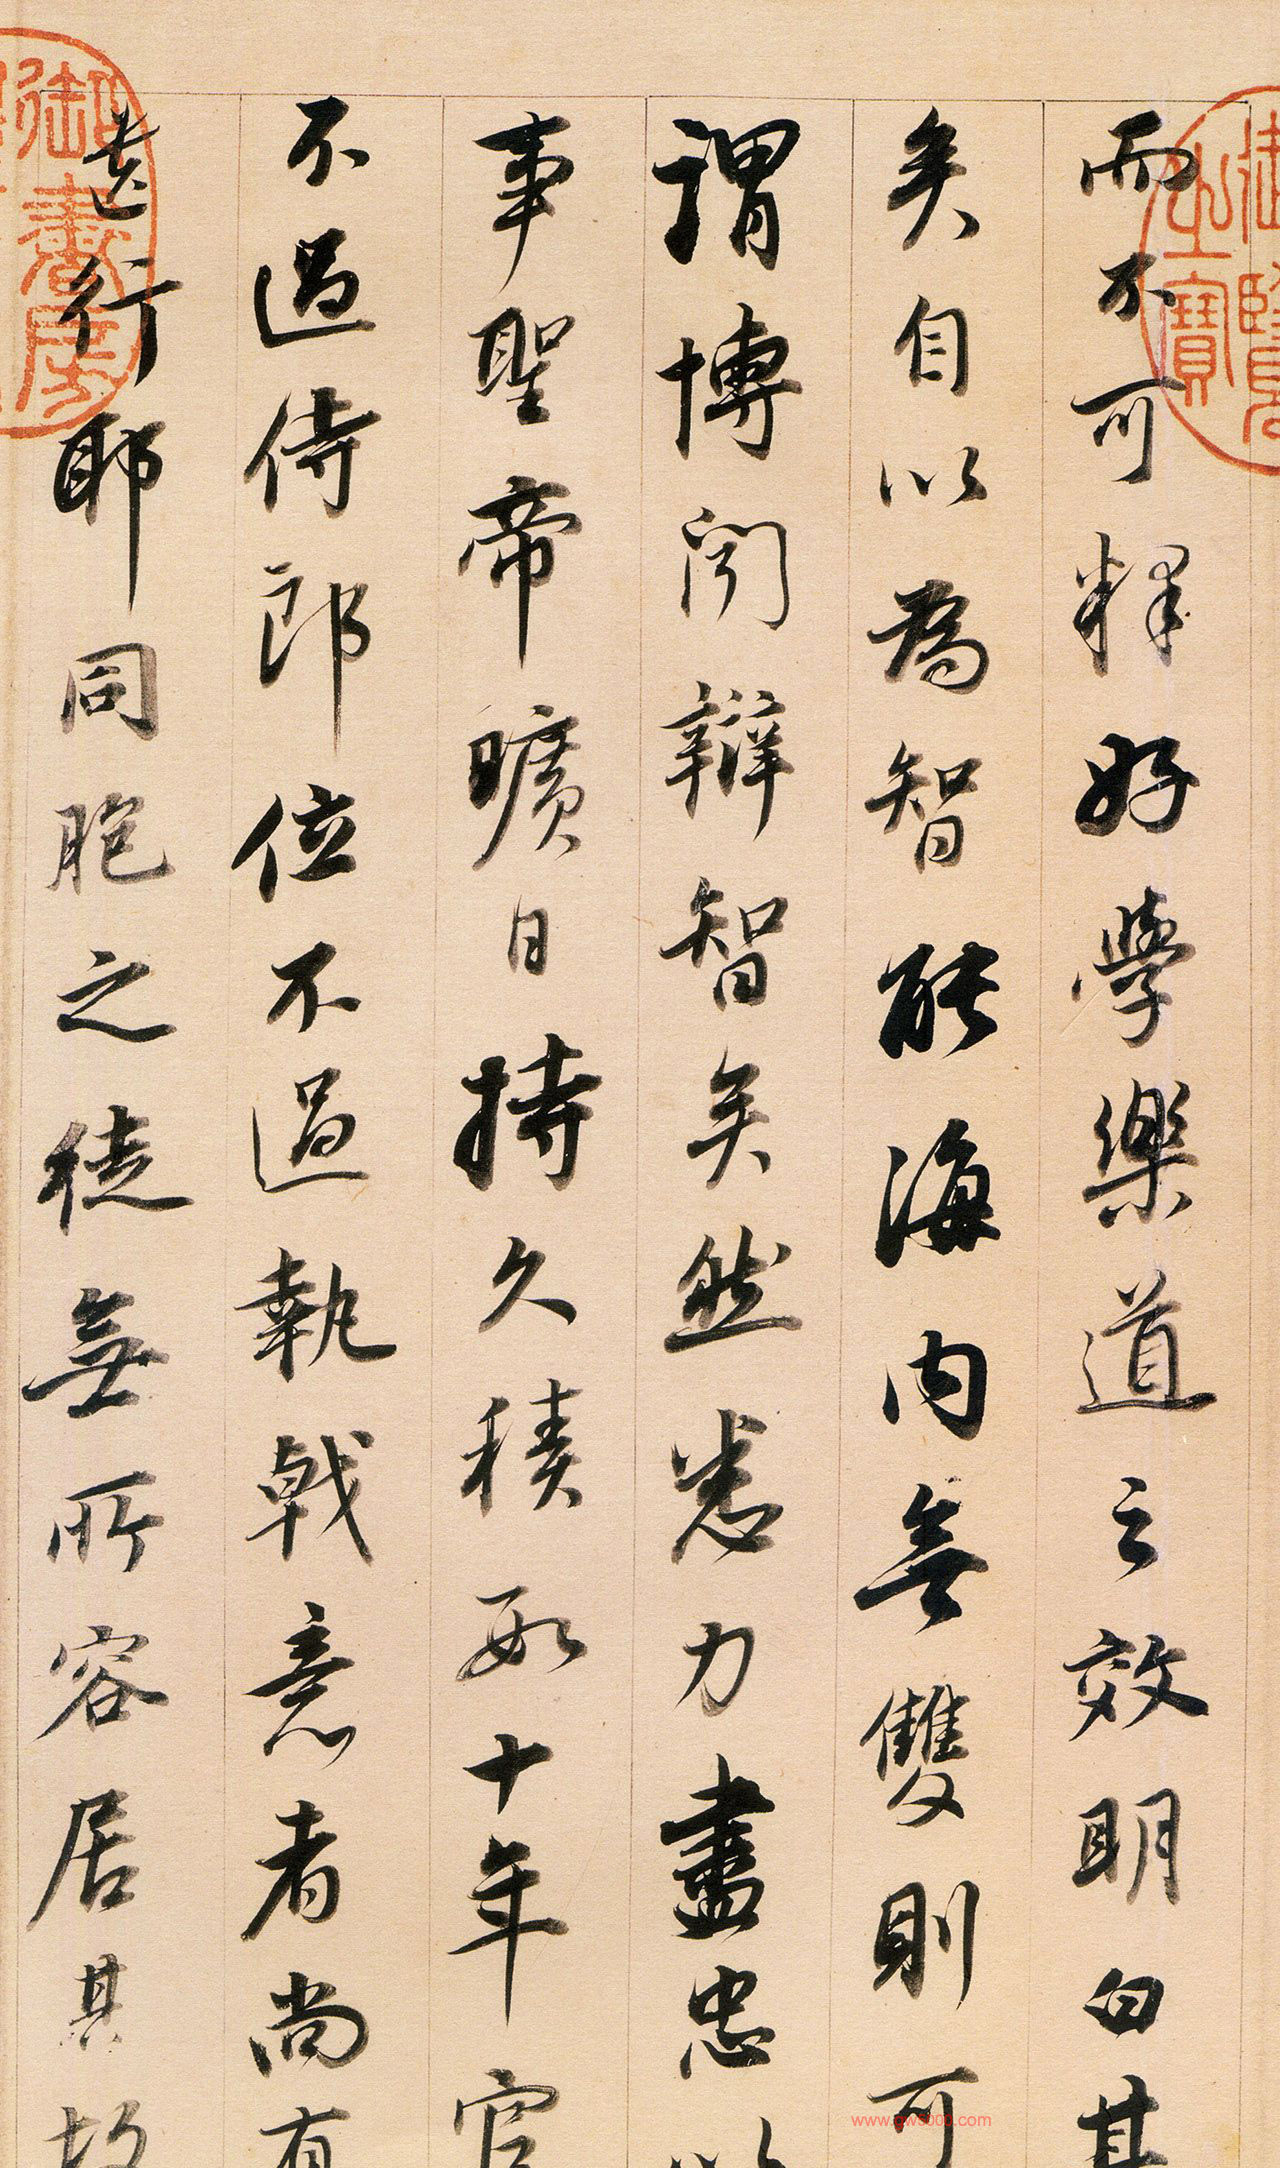 而不可釋好學樂道之效明白甚
矣自以為智能海內無雙則可
謂博聞辯智矣然悉力盡忠以
事聖帝曠日持久積數十年官
不過侍郎位不過執戟意者尚有
遺行耶同胞之徒無所容居其故
御書房
寶
www.gw5000.com